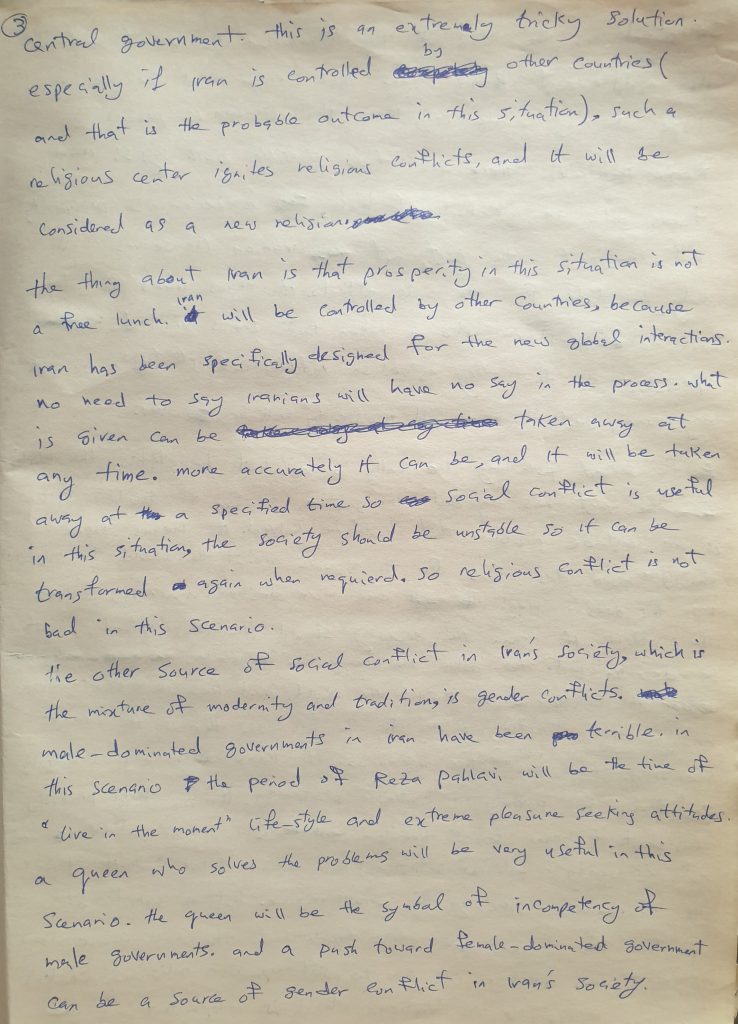 ③
central government. this is an extremely tricky solution.
especially if Iran is controlled by other countries (
and that is the probable outcome in this situation), such a
religious center ignites religious conflicts, and it will be
considered as a new religion.
the thing about Iran is that prosperity in this situation is not
a free lunch. Iran will be controlled by other countries, because
Iran has been specifically designed for the new global interactions.
no need to say Iranians will have no say in the process. what
is given can be taken away at
any time. more accurately it can be, and it will be taken
away at a specified time so social conflict is useful
in this situation, the society should be unstable so it can be
transformed again when requierd. so religious conflict is not
bad in this scenario.
the other source of social conflict in Iran's society, which is
the mixture of modernity and tradition, is gender conflicts.
male-dominated governments in iran have been terrible. in
this scenario the period of Reza pahlavi will be the time of
"live in the moment" life-style and extreme pleasure seeking attitudes.
a queen who solves the problems will be very useful in this
scenario. the queen will be the symbol of incompetency of
male governments. and a push toward female-dominated government
can be a source of gender conflict in Iran's society.